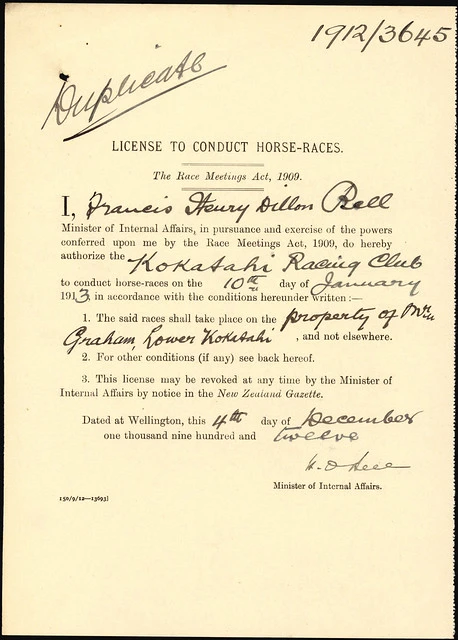 1912/3645
Duplicate
LICENSE TO CONDUCT HORSE-RACES.
The Race Meetings Act, 1909.
I, Francis Henry Dillon Bell
Minister of Internal Affairs, in pursuance and exercise of the powers
conferred upon me by the Race Meetings Act, 1909, do hereby
authorize the Kokatahi Racing Club
to conduct horse-races on the 10th day of January
1913, in accordance with the conditions hereunder written :—
1. The said races shall take place on the property of Mrs
Graham, Lower Kokatahi, and not elsewhere.
2. For other conditions (if any) see back hereof.
3. This license may be revoked at any time by the Minister of
Internal Affairs by notice in the New Zealand Gazette.
Dated at Wellington, this 4th day of December
one thousand nine hundred and twelve
Bell
Minister of Internal Affairs.
150/9/12—13693]